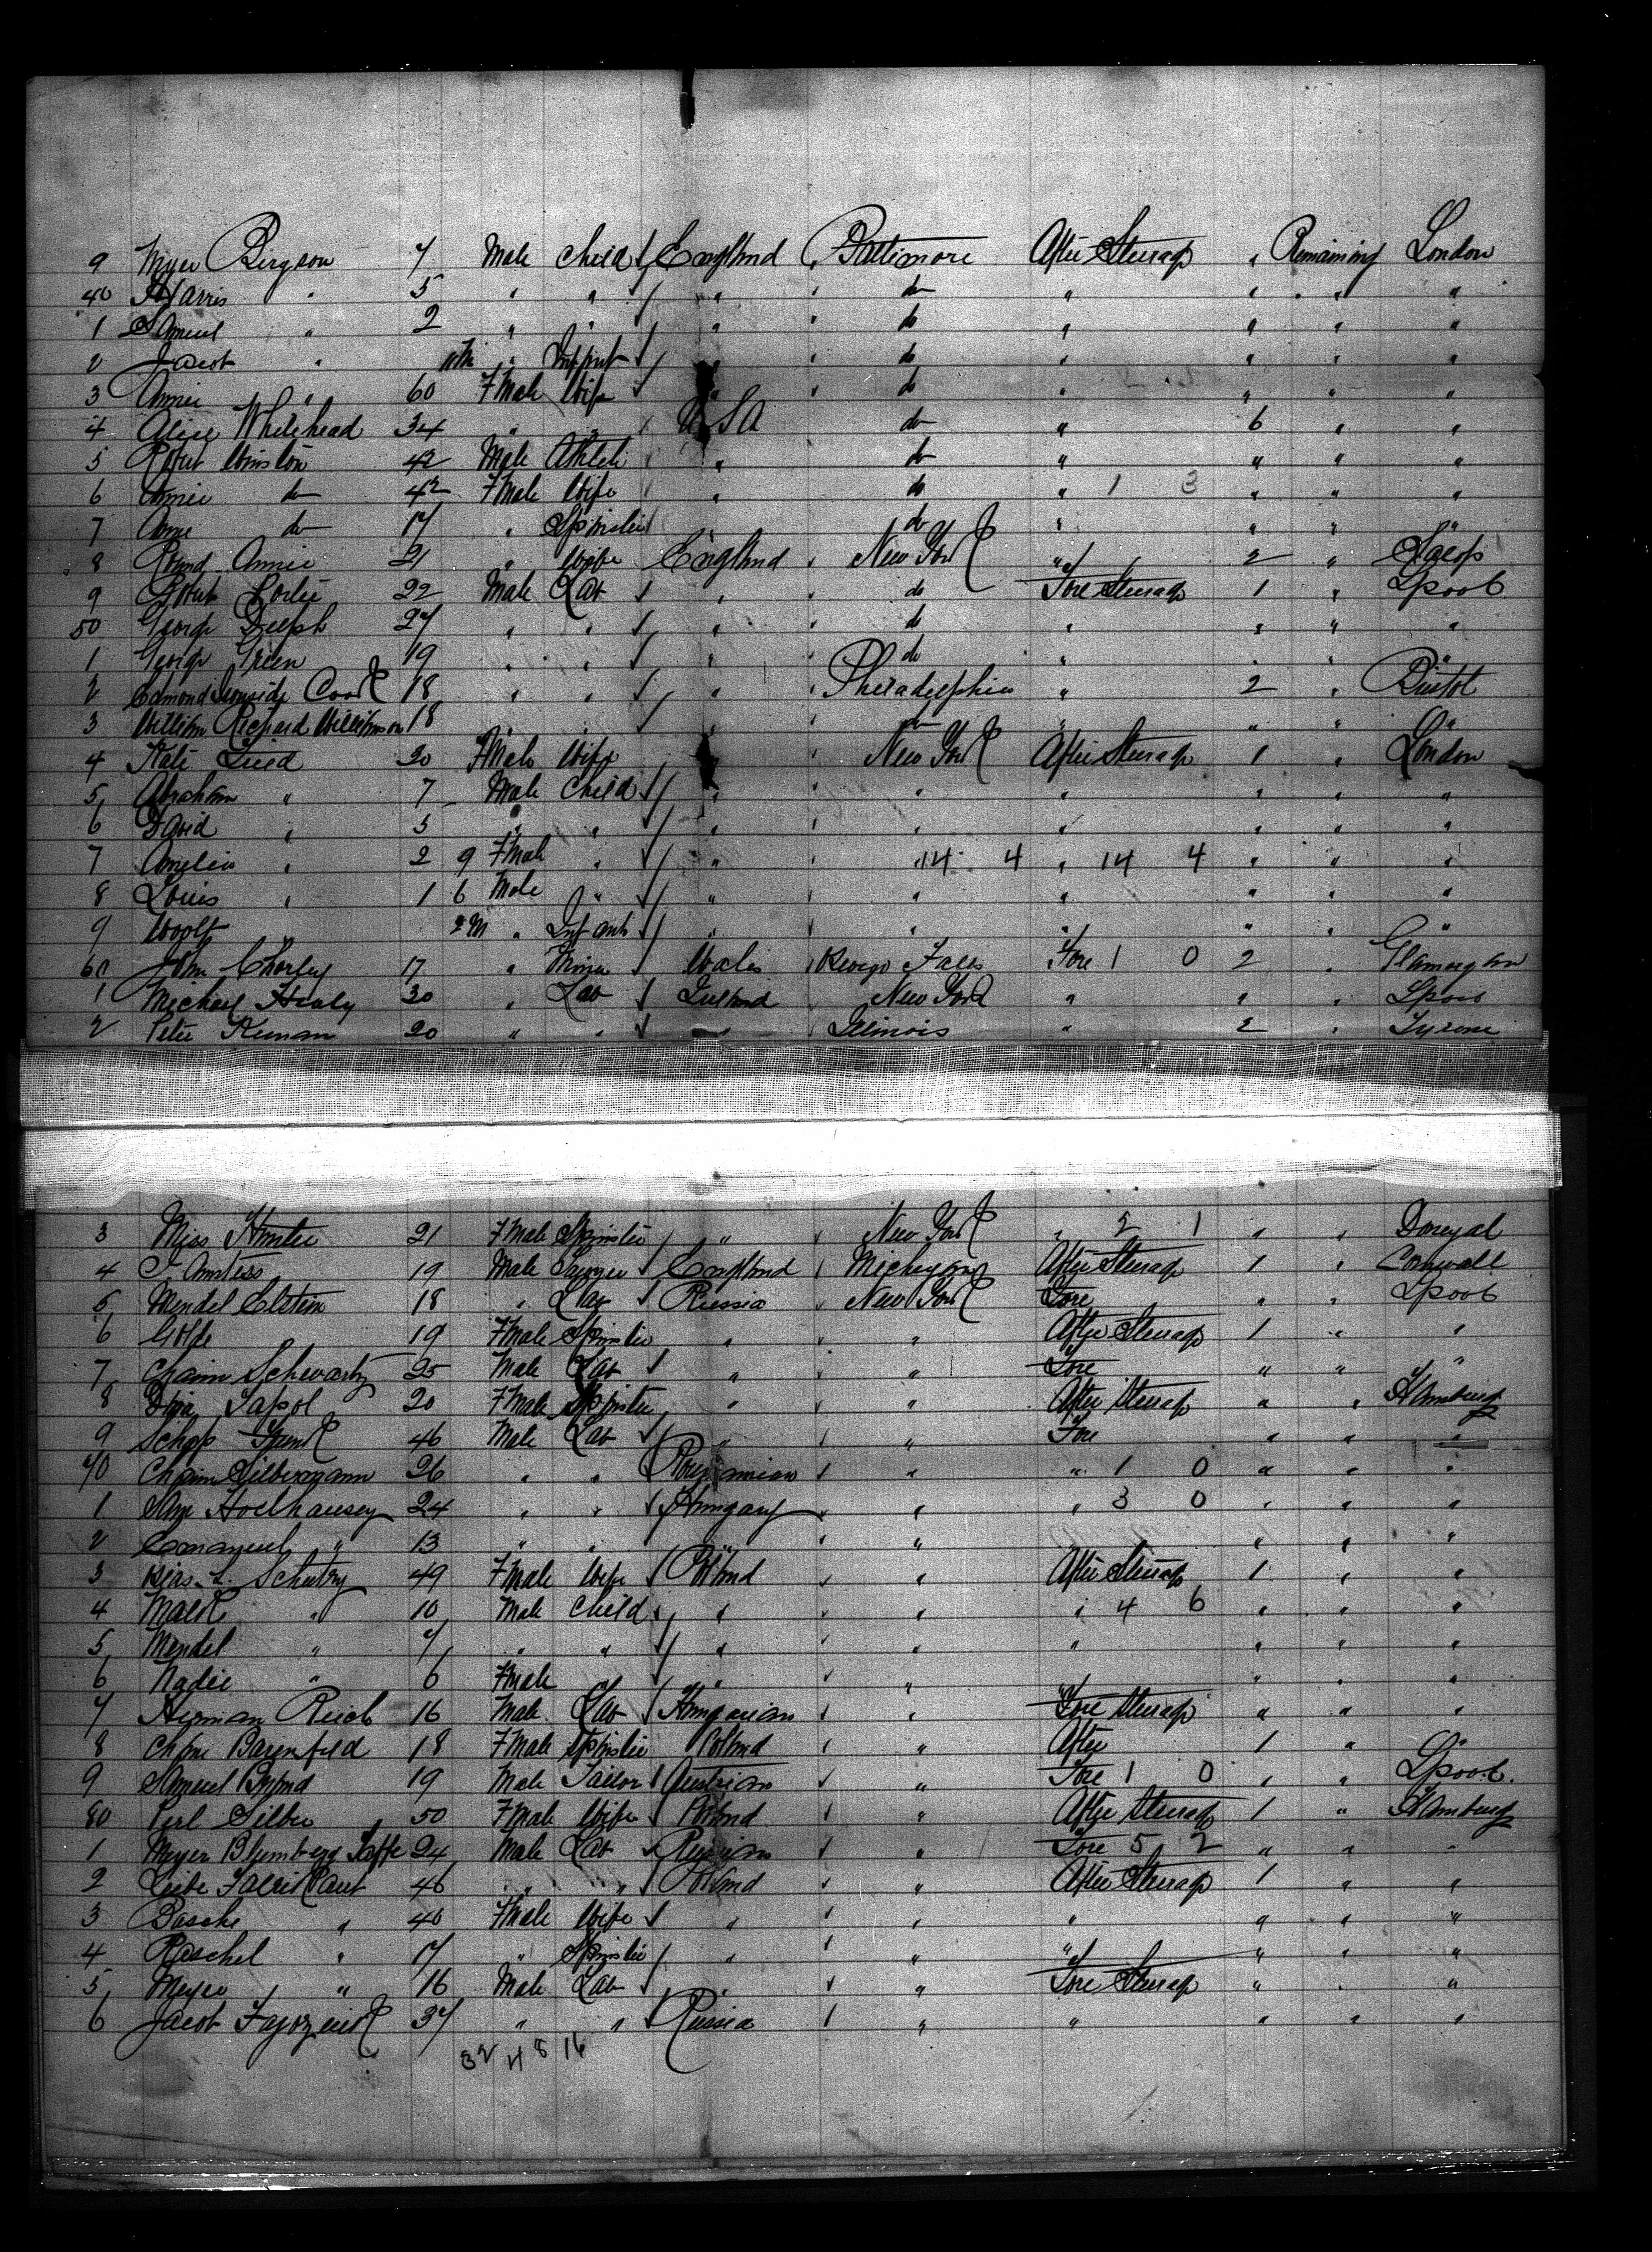 9 Myer Bergson 7 Male Child England Baltimore After Steerage " Remaining London
40 Harris " 5 " " " do " " " "
1 Samuel " 2 " " " do " " " "
2 Jacob " 11 m " Infant " do " " " "
3 Annie " 60 Fmale Wife " do " " " "
4 Alice Whitehead 34 " " U S A do " 6 " "
5 Robert Winston 42 Male " do " " " "
6 Annie do 42 Fmale Wife " do " 1 3 " " "
7 do 17 " Spinster " do " " " "
8 Annie 21 " Wife England New York " 2 "
9 Robert 22 Male Lab " do Fore Steerage 1 " Lpool
50 George 27 " " " do " " " "
1 George Green 19 " " " do " " " "
2 Edmond Ironside Cook 18 " " " Philadelphia " 2 " Bristol
3 William Richard Williamson 18 " " " do " " " "
4 Kate 20 Fmale Wife " New York After Steerage 1 " London
5 Abraham " 7 Male Child " " " " " "
6 David " 5 " " " " " " " "
7 Amelia " 2 9 Fmale " " " 14 4 " 14 4 " " "
8 Louis " 1 6 Male " " " " " " "
9 Woolf " 2 m " Infant " " " " " "
60 John Chorley 17 " Miner Wales Falls Fore 1 0 2 " Glamorgan
1 Michael Healy 30 " Lab Ireland New York " " " Lpool
2 Peter Keenan 20 " " " Illinois " 2 " Tyrone
3 Miss Hunter 21 Fmale Spinster " New York " 2 1 " " Donegal
4 19 Male England Michigan After Steerage 1 " Cornwall
5 Mendel Elstein 18 " Lab Russia New York Fore " " Lpool
6 Golde 19 Fmale Spinster " " After Steerage 1 " "
7 Chaim Schwartz 25 Male Lab " " Fore " " "
8 20 Fmale Spinster " " After Steerage " " Hamburg
9 46 Male Lab " " Fore " " "
70 Chaim Silbermann 26 " " Roumanian " " 1 0 " " "
1 24 " " Hungary " " 3 0 " " "
2 Emanuel " 13 " " " " " " "
3 49 Fmale Wife Poland " After Steerage 1 " "
4 " 10 Male Child " " " 4 6 " " "
5 Mendel " 7 " " " " " " " "
6 " 6 Fmale " " " " "
7 Herman Reich 16 Male Lab Hungarian " Fore Steerage " " "
8 18 Fmale Spinster Poland " After 1 " "
9 Samuel 19 Male Tailor Austrian " Fore 1 0 " " Lpool.
80 Perl Silber 50 Fmale Wife Poland " After Steerage 1 " Hamburg
1 Meyer Blumberg 24 Male Lab Russian " Fore 5 2 " " "
2 46 " " Poland After Steerage 1 " "
3 Basche " 40 Fmale Wife " " " " " "
4 Raschel " 17 " Spinster " " " " " "
5 " 16 Male Lab " " Fore Steerage " " "
6 Jacob 37 " " Russia " " " " "
32 4 8 16